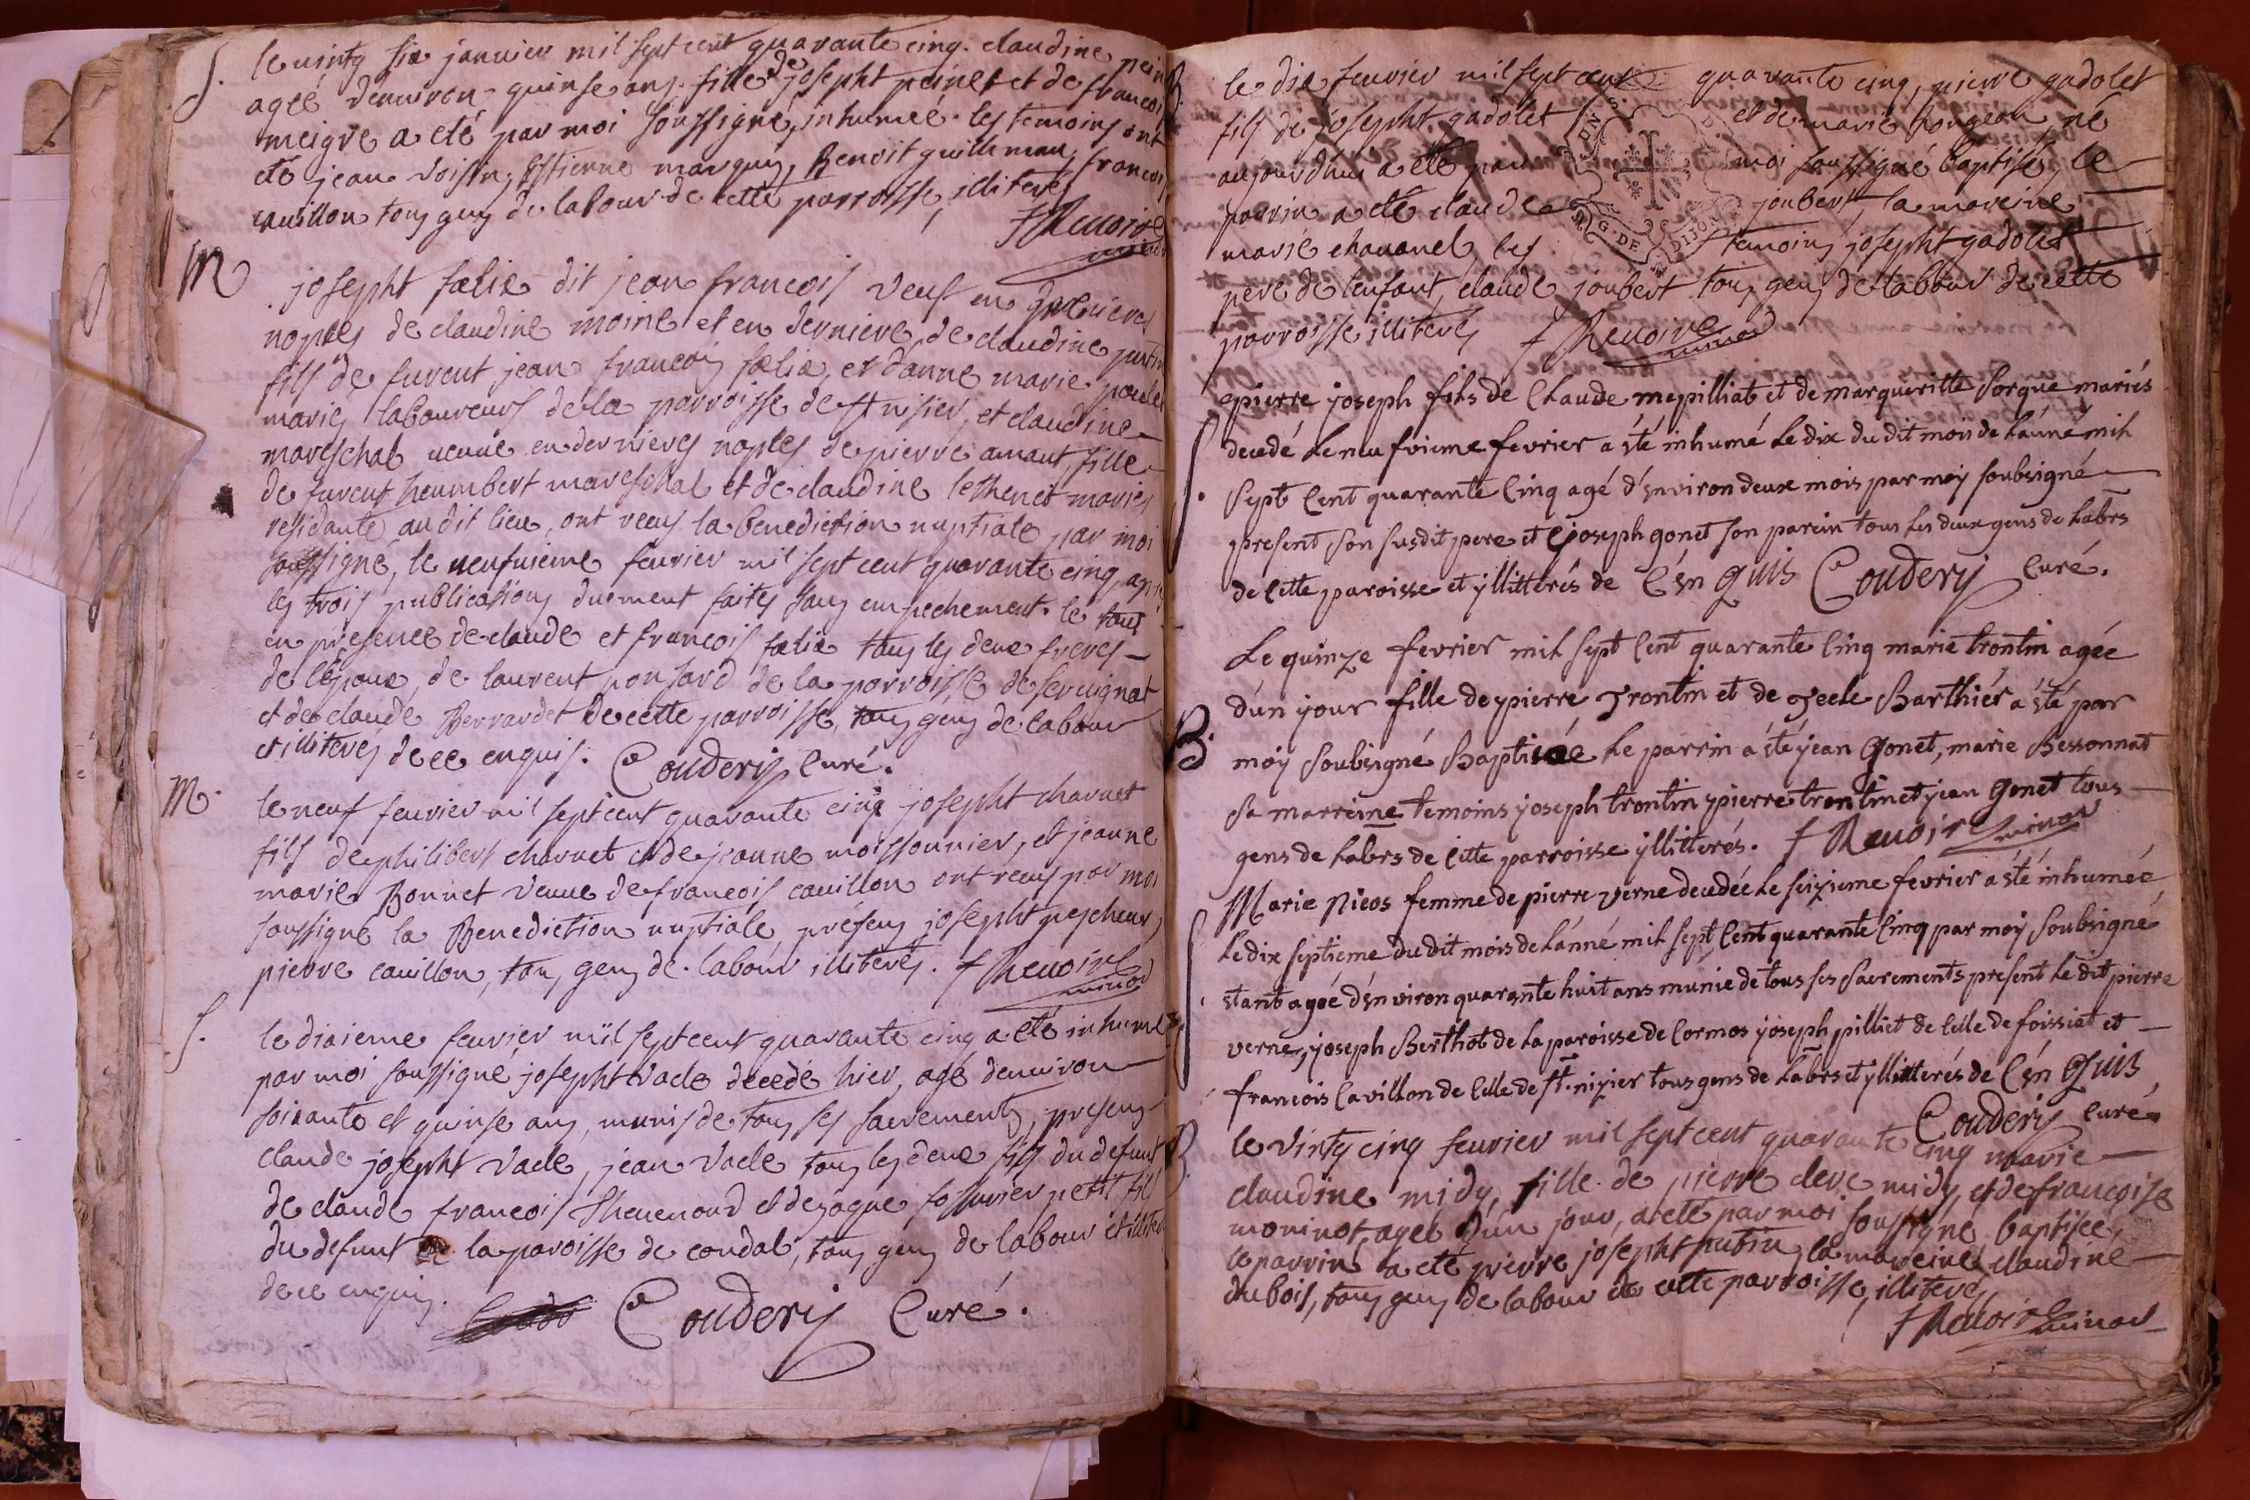 S. le vintg six janvier mil sept cent quarante cinq. claudine
ageé denviron quinse ans. fille de josepht peinet et de francois
meigre a eté par moi soussigné, inhumeé. les temoins ont
eté jean voisin, Estienne marguin, Benoit guilleman, francois
cavillon tous gens de labour de cette parroisse, illiterés
f Renoire
M
josepht fœlix dit jean francois veuf en premieres
noples de claudine moine et en derniere de claudine
fils de furent jean francois fœlix, et d'anne marie
mariés laboureurs de la parroisse de st nisier, et claudine
mareschal veuve en dernieres noples de pierre amant, fille
de furent heumbert mareschal et de claudine lethenet mariés
residante au dit lieu, ont receus la benediction nuptiale par moi
soussigné, le neufvieme feuvrier mil sept cent quarante cinq,
les trois publications duement faites sans empechement. le tout
en presence de claude et francois fœlix tous les deux freres
de l'epoux, de laurent ponsard de la parroisse de servignat
et de claude Bernardet de cette parroisse, tous gens de labour
et illiteres de ce enquis. Coudery Curé.
M.
le neuf feuvrier mil sept cent quarante cinq josepht charnet
fils de philibert charnet et de jeanne moissonnier, et jeanne
marie Bonnet veuve de francois cavillon ont receus par moi
soussigné la Benediction nuptiale, présens josepht pescheur,
pierre cavillon, tous gens de labour illiterés. f Renoire
S.
le dixieme feuvrier mil sept cent quarante cinq a eté inhumé
par moi soussigné josepht vacle decedé hier, agé denviron
soixante et quinse ans, munis de tous ses sacrements, presens
claude josepht vacle, jean vacle tous les deux fils du defunt
de claude francois Thevenard et de jaque fossurier petit fils
du defunt de la paroisse de condal, tous gens de labour et
de ce enquis.
Coudery Curé.
B.
le dix feuvrier mil sept cent quarante cinq, pierre gadolet
fils de josepht gadolet et de marie hongean né
aujourd'hui a eté par moi soussigné baptisé, le
parrin a eté claude joubert, la mareine
marie chavanel, les temoins josepht gadolet
pere de l'enfant, claude joubert tous gens de labour de cette
parroisse illiterés f Renoire minor
S.
pierre joseph fils de Claude mepilliat et de margueritte Sorgue mariés
decedé Le neufvieme fevrier a ésté inhumé Le dix du dit mois de L'anné mil
sept Cent quarante Cinq agé d'Environ deux mois par moy soubsigné
present son susdit pere et joseph gonet son parein tous Les deux gens de Labrs
de Cette paroisse et yllitterés de C'en quis Coudery Curé.
Le quinze fevrier mil sept Cent quarante Cinq marie trontin agée
d'un jour fille de pierre Trontin et de Barthier a ésté par
B.
moy soubsigné Baptisée Le parrin a ésté jean Gonet, marie Bessonnat
sa marreine temoins joseph trontin pierre trontin et jean Gonet tous
gens de Labrs de Cette parroisse yllitterés. f Renoire minor
S.
Marie Picos femme de pierre verne decedée Le seizieme fevrier a ésté inhumée
Le dix septieme du dit mois de L'anné mil sept Cent quarante Cinq par moy soubsigné
Etant agée d'Environ quarante huit ans munie de tous ses sacrements present Le dit pierre
verne, joseph Berthot de La paroisse de Cormos joseph pilliet de Celle de foissiat et
francois Cavillon de Celle de st. nizier tous gens de Labrs et yllitterés de C'en quis
Coudery Curé
B.
le vintg cinq feuvrier mil sept cent quarante cinq marie
claudine midy, fille de pierre clerc midy et de francoise
moninot, ageé d'un jour, a eté par moi soussigné baptisée,
le parrin a eté pierre josepht putin, la mareine claudine
dubois, tous gens de labour de cette parroisse, illiterés
f Renoire minor